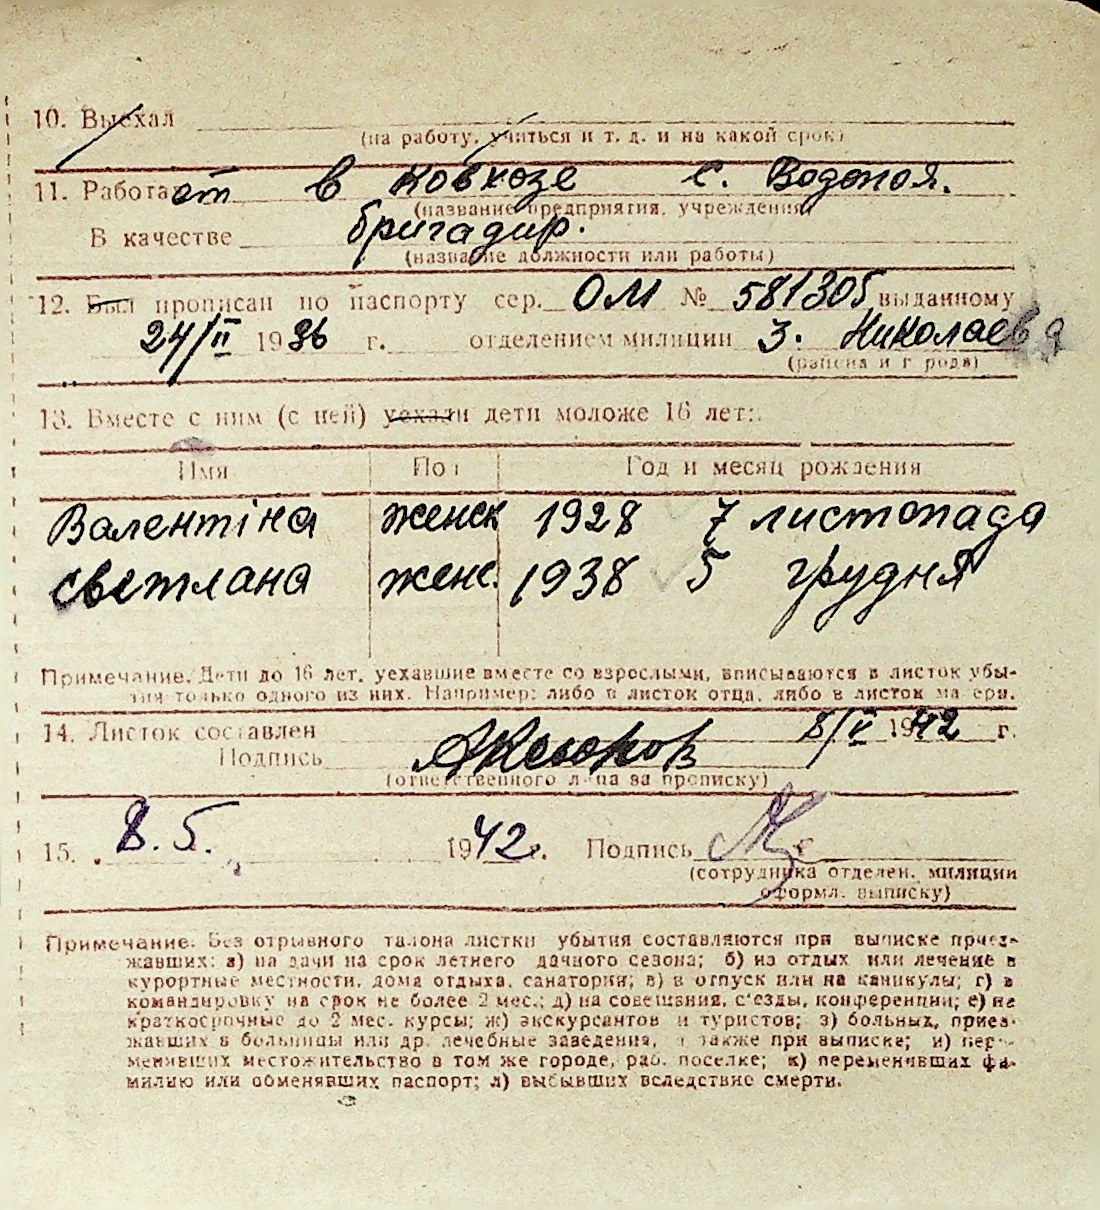 10. Выехал
(на работу, учиться и т. д. и на какой срок)
11. Работает в ковхозе с. Водопоя.
(название предприятия, учреждения)
В качестве бригадир.
(название должности или работы)
12. Был прописан по паспорту сер. ОМ № 581305 выданному
24/II 1936 г. отделением милиции З. Николаев
(района и города)
13. Вместе с ним (с ней) уехали дети моложе 16 лет:
Имя Пол Год и месяц рождения
Валентіна женск 1928 7 листопада
Светлана женс. 1938 5 грудня
Примечание. Дети до 16 лет, уехавшие вместе со взрослыми, вписываются в листок убы-
тия только одного из них. Например: либо в листок отца, либо в листок матери.
14. Листок составлен 8/V 1942 г.
Подпись
(ответственного лица за прописку)
15. 8.5. 1942. Подпись
(сотрудника отделен. милиции
оформл. выписку)
Примечание. Без отрывного талона листки убытия составляются при выписке приез-
жавших: а) на дачи на срок летнего дачного сезона; б) из отдых или лечение в
курортные местности, дома отдыха, санатории; в) в отпуск или на каникулы; г) в
командировку на срок не более 2 мес.; д) на совещания, с'езды, конференции; е) не
краткосрочные до 2 мес. курсы; ж) экскурсантов и туристов; з) больных, приез-
жавших в больницы или др. лечебные заведения, а также при выписке; и) пере-
менивших местожительство в том же городе, раб. поселке; к) переменивших фа-
милию или обменявших паспорт; л) выбывших вследствие смерти.